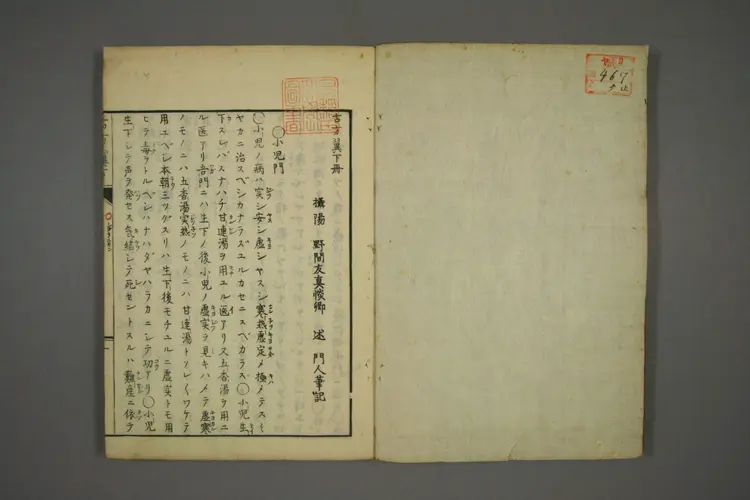 古方翼下冊
攝陽 野間友真愼卿 述 門人筆記
◯小児門
◯小児ノ病ハ実シ安シ虚シヤスシ寒熱虚定メ極メテスミ
ヤカニ治スベシカナラズユルカセニスベカラズ◯小児生
下スレバスナハチ甘連湯ヲ用ユル医アリ又五香湯ヲ用ユ
ル医アリ吾門ニハ生下ノ後小児ノ虚実ヲ見キハメテ虚寒
ノモノニハ五香湯実熱ノモノニハ甘連湯トソレ〳〵ワケテ
用ユベシ本朝三ツグスリハ生下後モチユルニ虚実トモ用
ヒテ毒ヲトルベシハナハダヤハラカニシテ功アリ◯小児
生下シテ声ヲ発セス気結シテ死セントスルハ難産ニ依テ
467
止